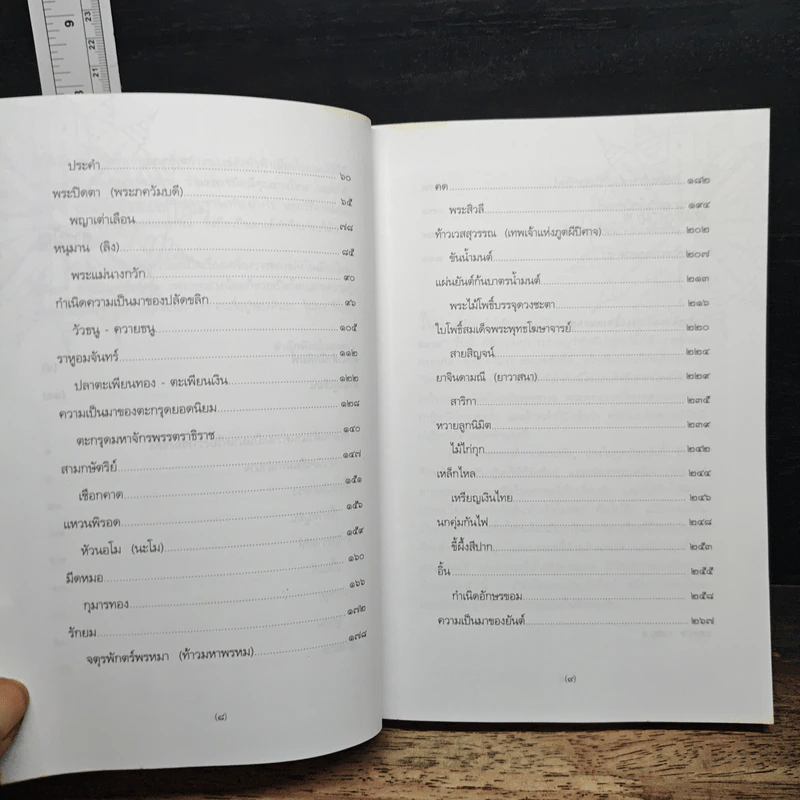 9
23
22
21
8
ประคำ ๖๐
พระปิดตา (พระภควัมบดี) ๖๕
พญาเต่าเลือน ๗๘
หนุมาน (ลิง) ๘๕
พระแม่นางกวัก ๙๐
กำเนิดความเป็นมาของปลัดขลิก ๙๖
วัวธนู - ควายธนู ๑๐๕
ราหูอมจันทร์ ๑๑๒
ปลาตะเพียนทอง - ตะเพียนเงิน ๑๒๒
ความเป็นมาของตะกรุดยอดนิยม ๑๒๘
ตะกรุดมหาจักรพรรตราธิราช ๑๔๐
สามกษัตริย์ ๑๔๗
เชือกคาด ๑๕๑
แหวนพิรอด ๑๕๖
หัวนอโม (นะโม) ๑๕๙
มีดหมอ ๑๖๐
กุมารทอง ๑๖๖
รักยม ๑๗๒
จตุรพักตร์พรหมา (ท้าวมหาพรหม) ๑๗๘
(๘)
คด ๑๘๒
พระสิวลี ๑๙๔
ท้าวเวสสุวรรณ (เทพเจ้าแห่งภูตผีปิศาจ) ๒๐๒
ขันน้ำมนต์ ๒๐๗
แผ่นยันต์ก้นบาตรน้ำมนต์ ๒๑๓
พระไม้โพธิ์บรรจุดวงชะตา ๒๑๖
ใบโพธิ์สมเด็จพระพุทธโฆษาจารย์ ๒๒๐
สายสิญจน์ ๒๒๔
ยาจินดามณี (ยาวาสนา) ๒๒๙
สาริกา ๒๓๕
หวายลูกนิมิต ๒๓๙
ไม้ไก่กุก ๒๔๒
เหล็กไหล ๒๔๔
เหรียญเงินไทย ๒๔๖
นกคุ่มกันไฟ ๒๔๘
ขี้ผึ้งสีปาก ๒๕๓
อิ้น ๒๕๕
กำเนิดอักษรขอม ๒๕๘
ความเป็นมาของยันต์ ๒๖๗
(๙)